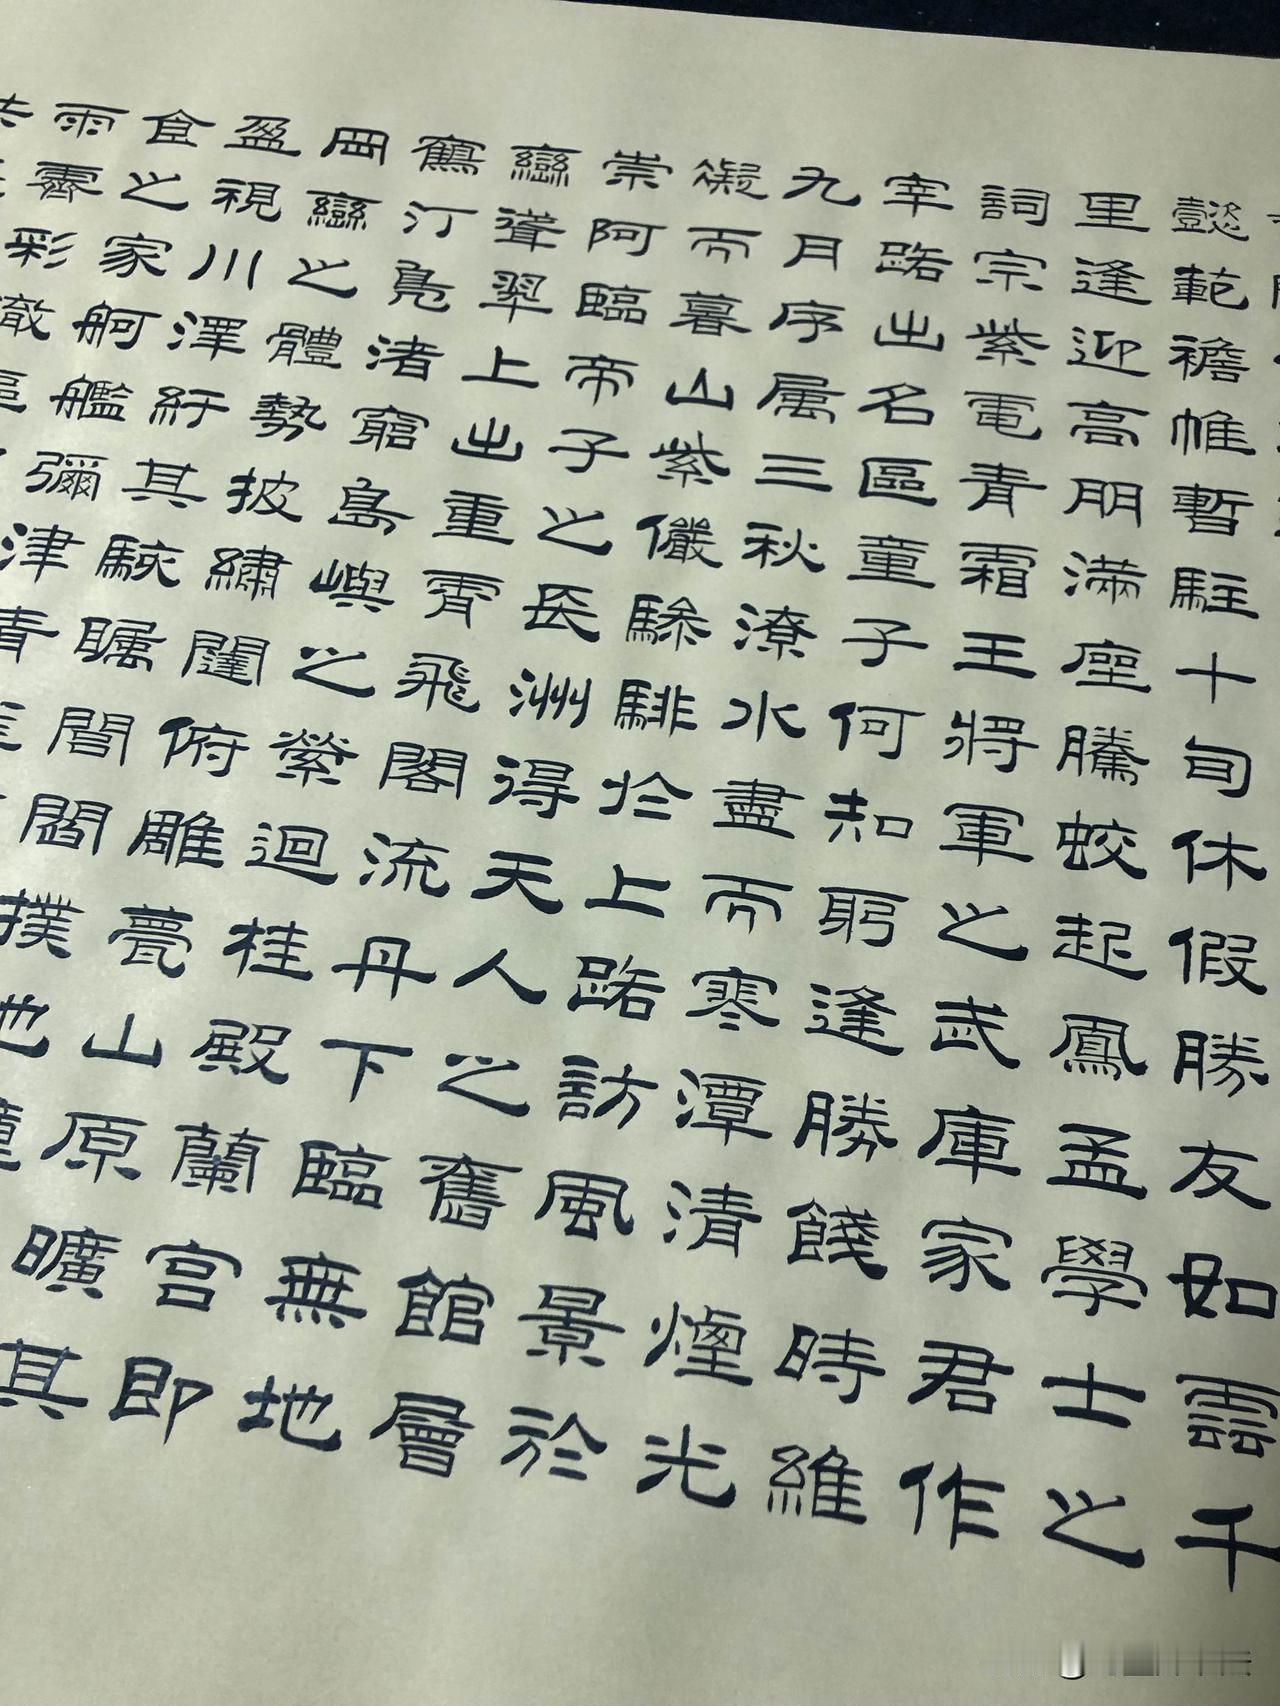 懿範襜帷暫駐十旬休假勝友如雲千
里逢迎高朋滿座騰蛟起鳳孟學士之
詞宗紫電青霜王將軍之武庫家君作
宰路出名區童子何知躬逢勝餞時維
九月序属三秋潦水盡而寒潭清煙光
凝而暮山紫儼驂騑於上路訪風景於
崇阿臨帝子之長洲得天人之舊館層
巒聳翠上出重霄飛閣流丹下臨無地
鶴汀鳧渚窮島嶼之縈迴桂殿蘭宮即
岡巒之體勢披繡闥俯雕甍山原曠其
盈視川澤紆其駭矚閭閻撲地
食之家舸艦彌津青
雨霽彩徹區